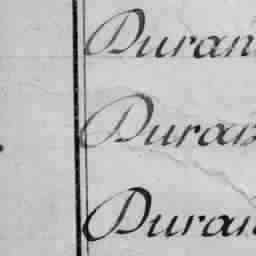 Duran
Duran
Duran